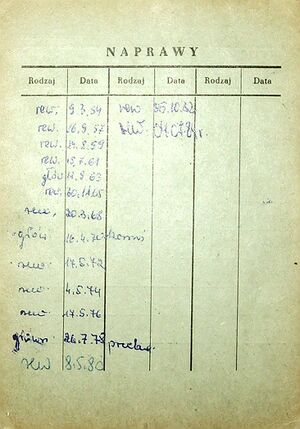 NAPRAWY
Rodzaj Data Rodzaj Data Rodzaj Data
rew. 9.3.54 rew 25.10.82
rew. 16.9.57 rew.
rew. 14.8.59
rew. 15.7.61
głów 17.8.63
rew. 30.11.65
rew. 20.3.68
głów 16.4.70
rew 17.5.72
rew 4.5.74
rew. 17.5.76
główn. 26.7.78
rew 8.5.80